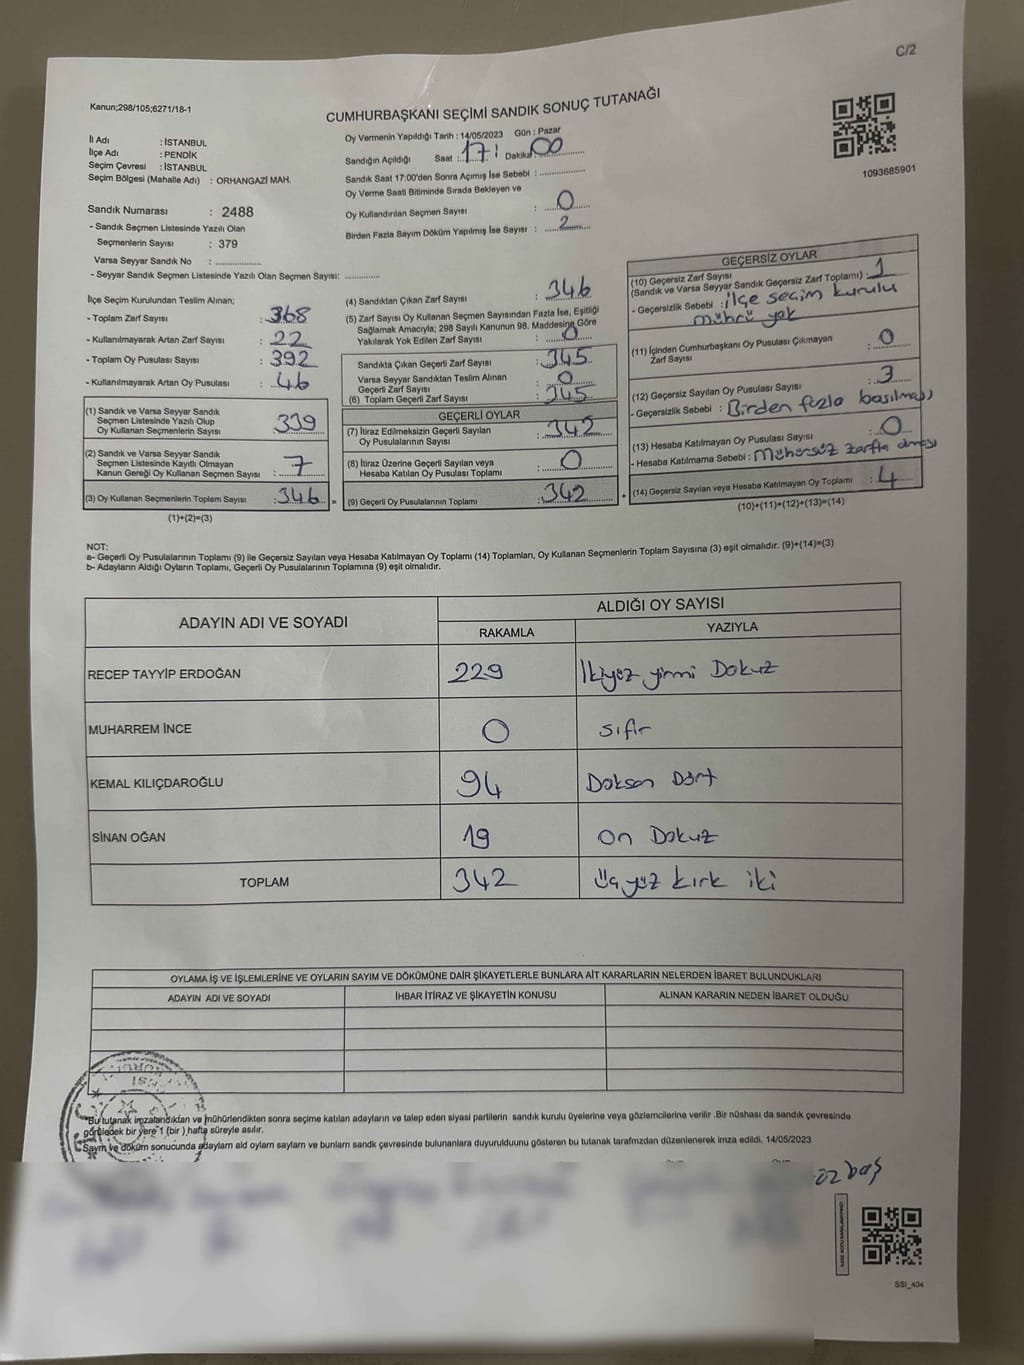 C/2
Kanun;298/105;6271/18-1
CUMHURBAŞKANI SEÇİMİ SANDIK SONUÇ TUTANAĞI
İl Adı : İSTANBUL
İlçe Adı : PENDİK
Seçim Çevresi : İSTANBUL
Seçim Bölgesi (Mahalle Adı) : ORHANGAZİ MAH.
Oy Vermenin Yapıldığı Tarih : 14/05/2023 Gün : Pazar
Sandığın Açıldığı Saat : 17 : Dakika : 00
Sandık Saat 17:00'den Sonra Açımış İse Sebebi :
Oy Verme Saati Bitiminde Sırada Bekleyen ve
Oy Kullandırılan Seçmen Sayısı : 0
Birden Fazla Sayım Döküm Yapılmış İse Sayısı : 2
1093685901
Sandık Numarası : 2488
- Sandık Seçmen Listesinde Yazılı Olan
Seçmenlerin Sayısı : 379
Varsa Seyyar Sandık No :
- Seyyar Sandık Seçmen Listesinde Yazılı Olan Seçmen Sayısı:
İlçe Seçim Kurulundan Teslim Alınan;
- Toplam Zarf Sayısı : 368
- Kullanılmayarak Artan Zarf Sayısı : 22
- Toplam Oy Pusulası Sayısı : 392
- Kullanılmayarak Artan Oy Pusulası : 46
(1) Sandık ve Varsa Seyyar Sandık
Seçmen Listesinde Yazılı Olup
Oy Kullanan Seçmenlerin Sayısı : 339
(2) Sandık ve Varsa Seyyar Sandık
Seçmen Listesinde Kayıtlı Olmayan
Kanun Gereği Oy Kullanan Seçmen Sayısı : 7
(3) Oy Kullanan Seçmenlerin Toplam Sayısı : 346
(1)+(2)=(3)
(4) Sandıktan Çıkan Zarf Sayısı : 346
(5) Zarf Sayısı Oy Kullanan Seçmen Sayısından Fazla İse, Eşitliği
Sağlamak Amacıyla; 298 Sayılı Kanunun 98. Maddesine Göre
Yakılarak Yok Edilen Zarf Sayısı : 0
Sandıkta Çıkan Geçerli Zarf Sayısı : 345
Varsa Seyyar Sandıktan Teslim Alınan
Geçerli Zarf Sayısı : 0
(6) Toplam Geçerli Zarf Sayısı : 345
GEÇERLİ OYLAR
(7) İtiraz Edilmeksizin Geçerli Sayılan
Oy Pusulalarının Sayısı : 342
(8) İtiraz Üzerine Geçerli Sayılan veya
Hesaba Katılan Oy Pusulası Toplamı : 0
= (9) Geçerli Oy Pusulalarının Toplamı : 342 +
GEÇERSİZ OYLAR
(10) Geçersiz Zarf Sayısı
(Sandık ve Varsa Seyyar Sandık Geçersiz Zarf Toplamı) : 1
- Geçersizlik Sebebi : ilçe seçim kurulu
mührü yok
(11) İçinden Cumhurbaşkanı Oy Pusulası Çıkmayan
Zarf Sayısı : 0
(12) Geçersiz Sayılan Oy Pusulası Sayısı : 3
- Geçersizlik Sebebi : Birden fazla basılması
(13) Hesaba Katılmayan Oy Pusulası Sayısı : 0
- Hesaba Katılmama Sebebi : Mühürsüz zarfta olması
(14) Geçersiz Sayılan veya Hesaba Katılmayan Oy Toplamı : 4
(10)+(11)+(12)+(13)=(14)
NOT:
a- Geçerli Oy Pusulalarının Toplamı (9) ile Geçersiz Sayılan veya Hesaba Katılmayan Oy Toplamı (14) Toplamları, Oy Kullanan Seçmenlerin Toplam Sayısına (3) eşit olmalıdır. (9)+(14)=(3)
b- Adayların Aldığı Oyların Toplamı, Geçerli Oy Pusulalarının Toplamına (9) eşit olmalıdır.
ADAYIN ADI VE SOYADI
ALDIĞI OY SAYISI
RAKAMLA YAZIYLA
RECEP TAYYİP ERDOĞAN 229 İkiyüz yirmi Dokuz
MUHARREM İNCE 0 sıfır
KEMAL KILIÇDAROĞLU 94 Doksan Dört
SİNAN OĞAN 19 on Dokuz
TOPLAM 342 üçyüz kırk iki
OYLAMA İŞ VE İŞLEMLERİNE VE OYLARIN SAYIM VE DÖKÜMÜNE DAİR ŞİKAYETLERLE BUNLARA AİT KARARLARIN NELERDEN İBARET BULUNDUKLARI
ADAYIN ADI VE SOYADI İHBAR İTİRAZ VE ŞİKAYETİN KONUSU ALINAN KARARIN NEDEN İBARET OLDUĞU
*Bu tutanak imzalandıktan ve mühürlendikten sonra seçime katılan adayların ve talep eden siyasi partilerin sandık kurulu üyelerine veya gözlemcilerine verilir .Bir nüshası da sandık çevresinde
görülecek bir yere 1 (bir ) hafta süreyle asılır.
Sayım ve döküm sonucunda adayların ald oyların sayların ve bunların sandk çevresinde bulunanlara duyurulduunu gösteren bu tutanak tarafmzdan düzenlenerek imza edildi. 14/05/2023
özbaş
SSI_404